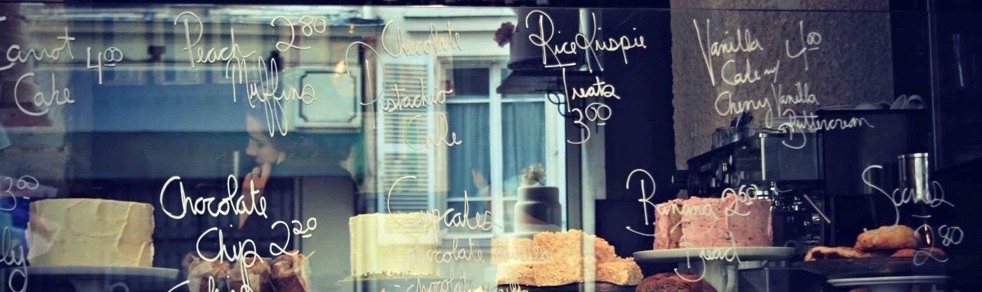 Carrot
Cake
4.00
Peach
Muffins
2.80
Chocolate
Pistachio
Cake
Rice Krispie
Treats
3.00
Vanilla
Cake w/
Cherry Vanilla
Buttercream
4.00
3.00
Chocolate
Chip 2.20
Cupcakes
chocolate vanilla
Banana 2.60
Bread
Scones
2.80